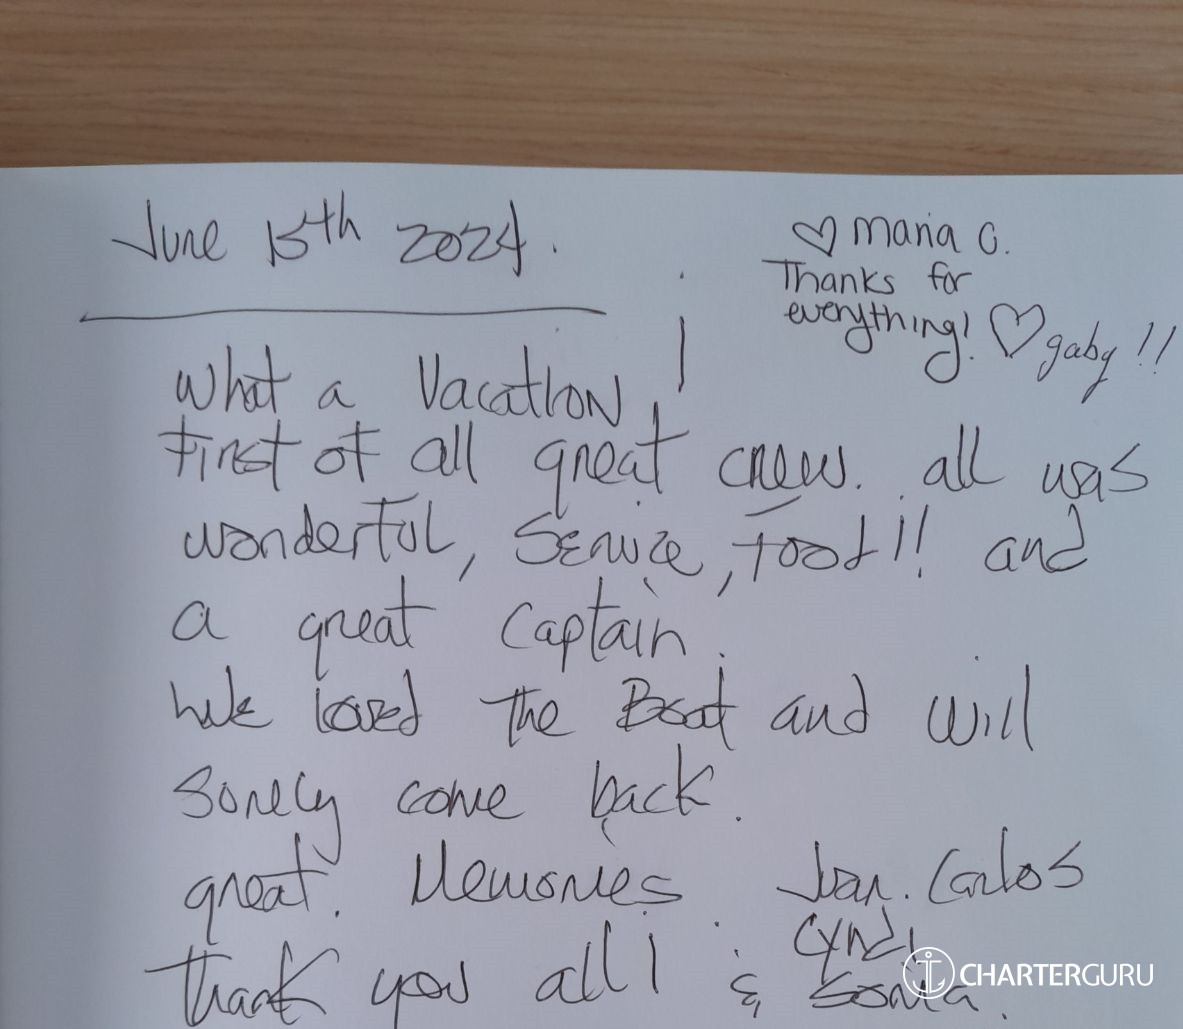 June 15th 2024.
♡ Maria C.
Thanks for
everything! ♡ gaby !!
What a Vacation!
First of all great crew. all was
wonderful, Service, Food!! and
a great Captain.
We loved the Boat and will
surely come back.
great. Memories
thank you all!
Juan. Carlos
Cyndi
& Sonia.
CHARTERGURU